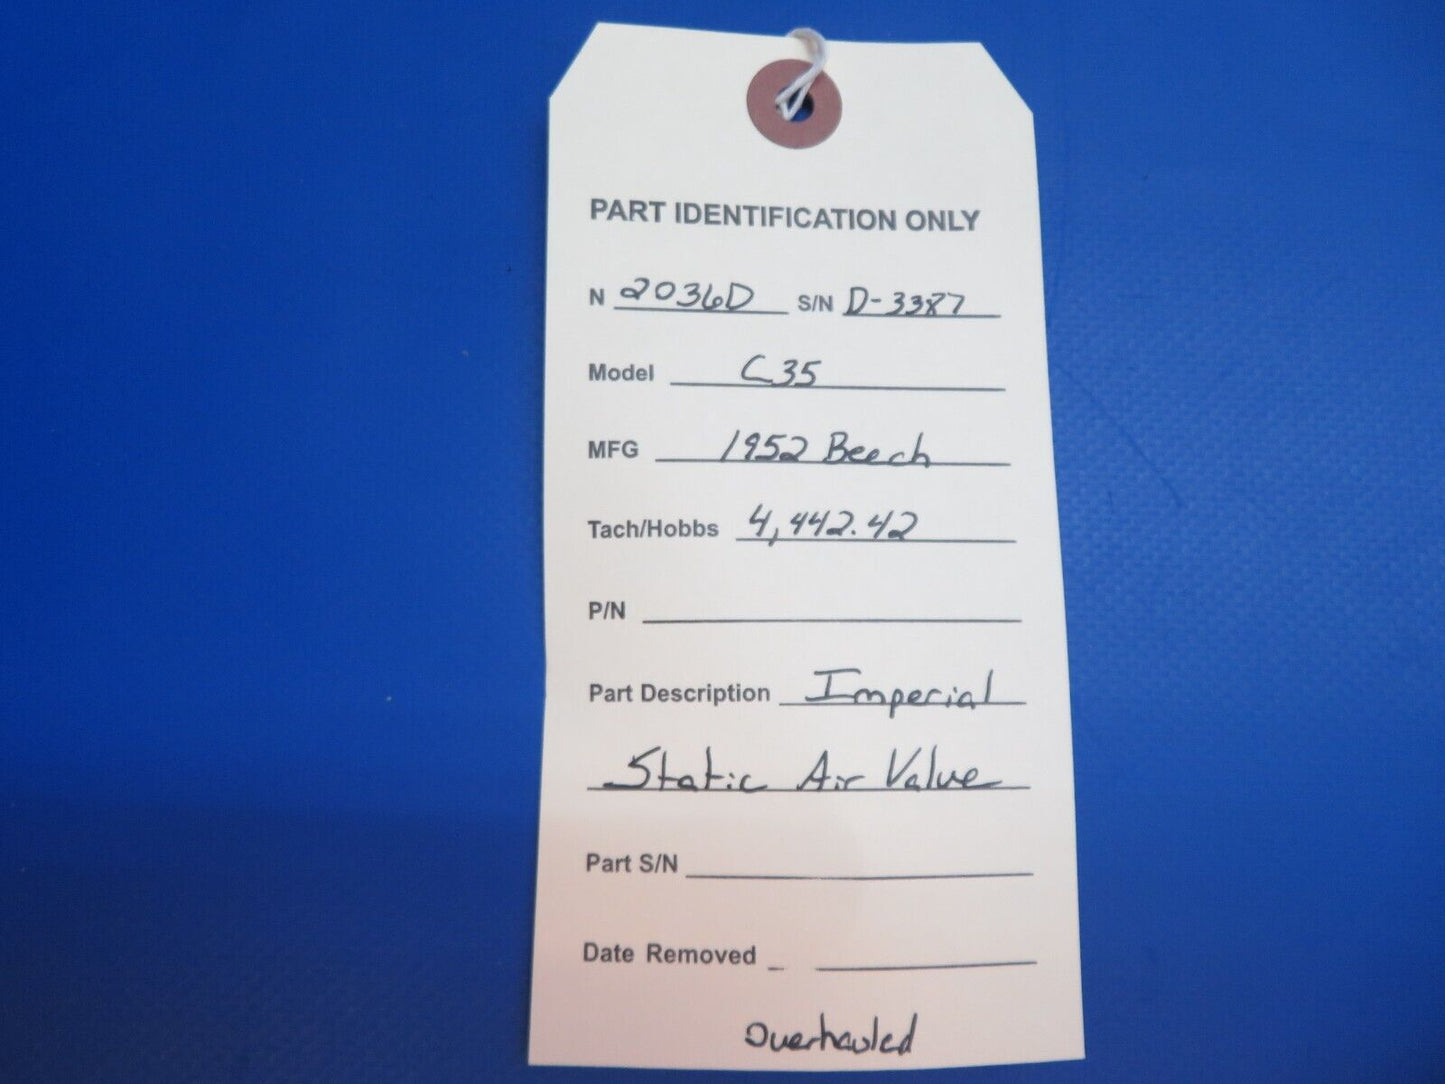 PART IDENTIFICATION ONLY
N 2036D S/N D-3387
Model C35
MFG 1952 Beech
Tach/Hobbs 4,442.42
P/N
Part Description Imperial
Static Air Valve
Part S/N
Date Removed
Overhauled